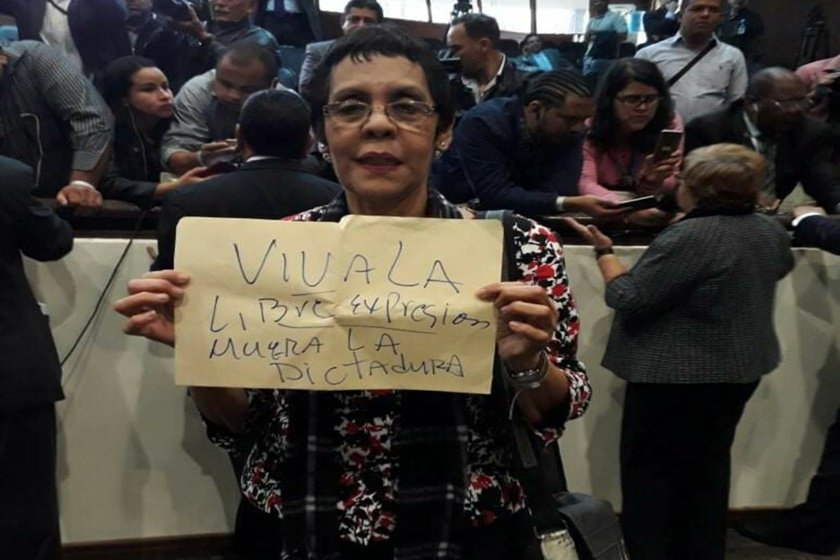 VIVA LA
LIBre exPresion
MUERA LA
DictADURA